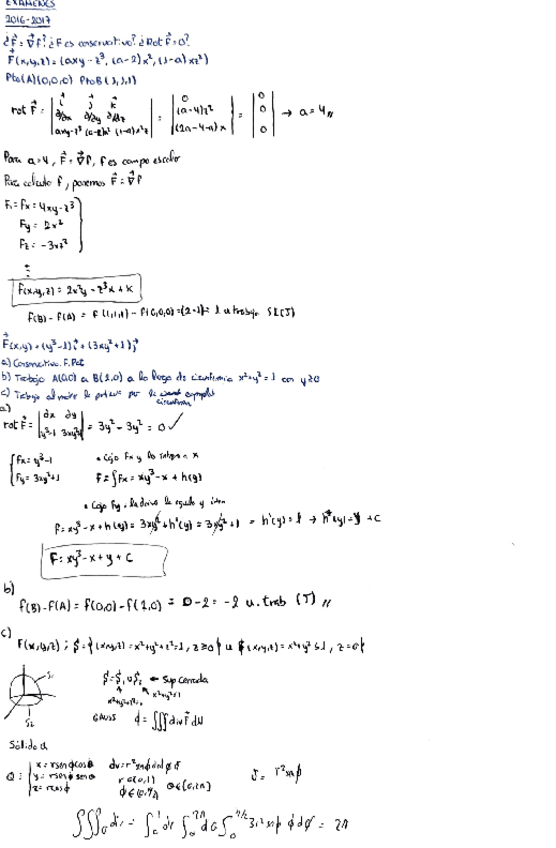 EXÁMENES
2016-2017
¿F⃗=∇⃗f? ¿F es conservativo? ¿Rot F⃗=0?
F⃗(x,y,z)=(axy-z³, (a-2)x², (1-a)xz²)
Pto(A)(0,0,0) Pto B(1,1,1)
rot F⃗ = | i⃗ j⃗ k⃗ ; ∂/∂x ∂/∂y ∂/∂z ; axy-z³ (a-2)x² (1-a)xz² | = | 0 ; (a-4)z² ; (2a-4-a)x | = | 0 ; 0 ; 0 | → a=4//
Para a=4, F⃗=∇⃗f, f es campo escalar
Para calculo f, ponemos F⃗=∇⃗f
F₁=Fx=4xy-z³
Fy=2x²
Fz=-3xz²
⋮
F(x,y,z)=2x²y-z³x+k
F(B)-F(A) = F(1,1,1)-F(0,0,0)=(2-1)=1 u trabajo
F⃗(x,y)=(y³-1)i⃗+(3xy²+1)j⃗
a) Conservativo. F. Pot
b) Trabajo A(0,0) a B(2,0) a lo largo de circunferencia con y≥0
c) Trabajo al mover la
circunferencia
a)
rot F⃗ = | ∂x ∂y ; y³-1 3xy²+1 | = 3y²-3y² = 0 ✓
Fx=y³-1
• Cojo Fx y lo integro x
Fy=3xy²+1
F=∫Fx=xy³-x+h(y)
• Cojo Fy, la derivo la igualo y
F=xy³-x+h(y)=3xy²+h'(y)=3xy²+1 = h'(y)=1 → h(y)=y+C
F=xy³-x+y+C
b)
F(B)-F(A)=F(0,0)-F(2,0)=0-2=-2 u. trab (J)//
c)
F(x,y,z); S={(x,y,z)=x²+y²+z²=1, z≥0} u {(x,y,z)=x²+y²≤1, z=0}
S₁
S=S₁∪S₂ ← Sup cerrada
x²+y²≤1
S₂
GAUSS ϕ=∭div F⃗ dV
Sólido Q
Q: x=rsenϕcosθ dv=r²senϕ
y=rsenϕsenθ r∈(0,1)
J=r²senϕ
z=rcosϕ ϕ∈(0,π/2) θ∈[0,2π]
∭ = ∫₀¹dr ∫₀²π dθ ∫₀π/2 3r²senϕ dϕ = 2π